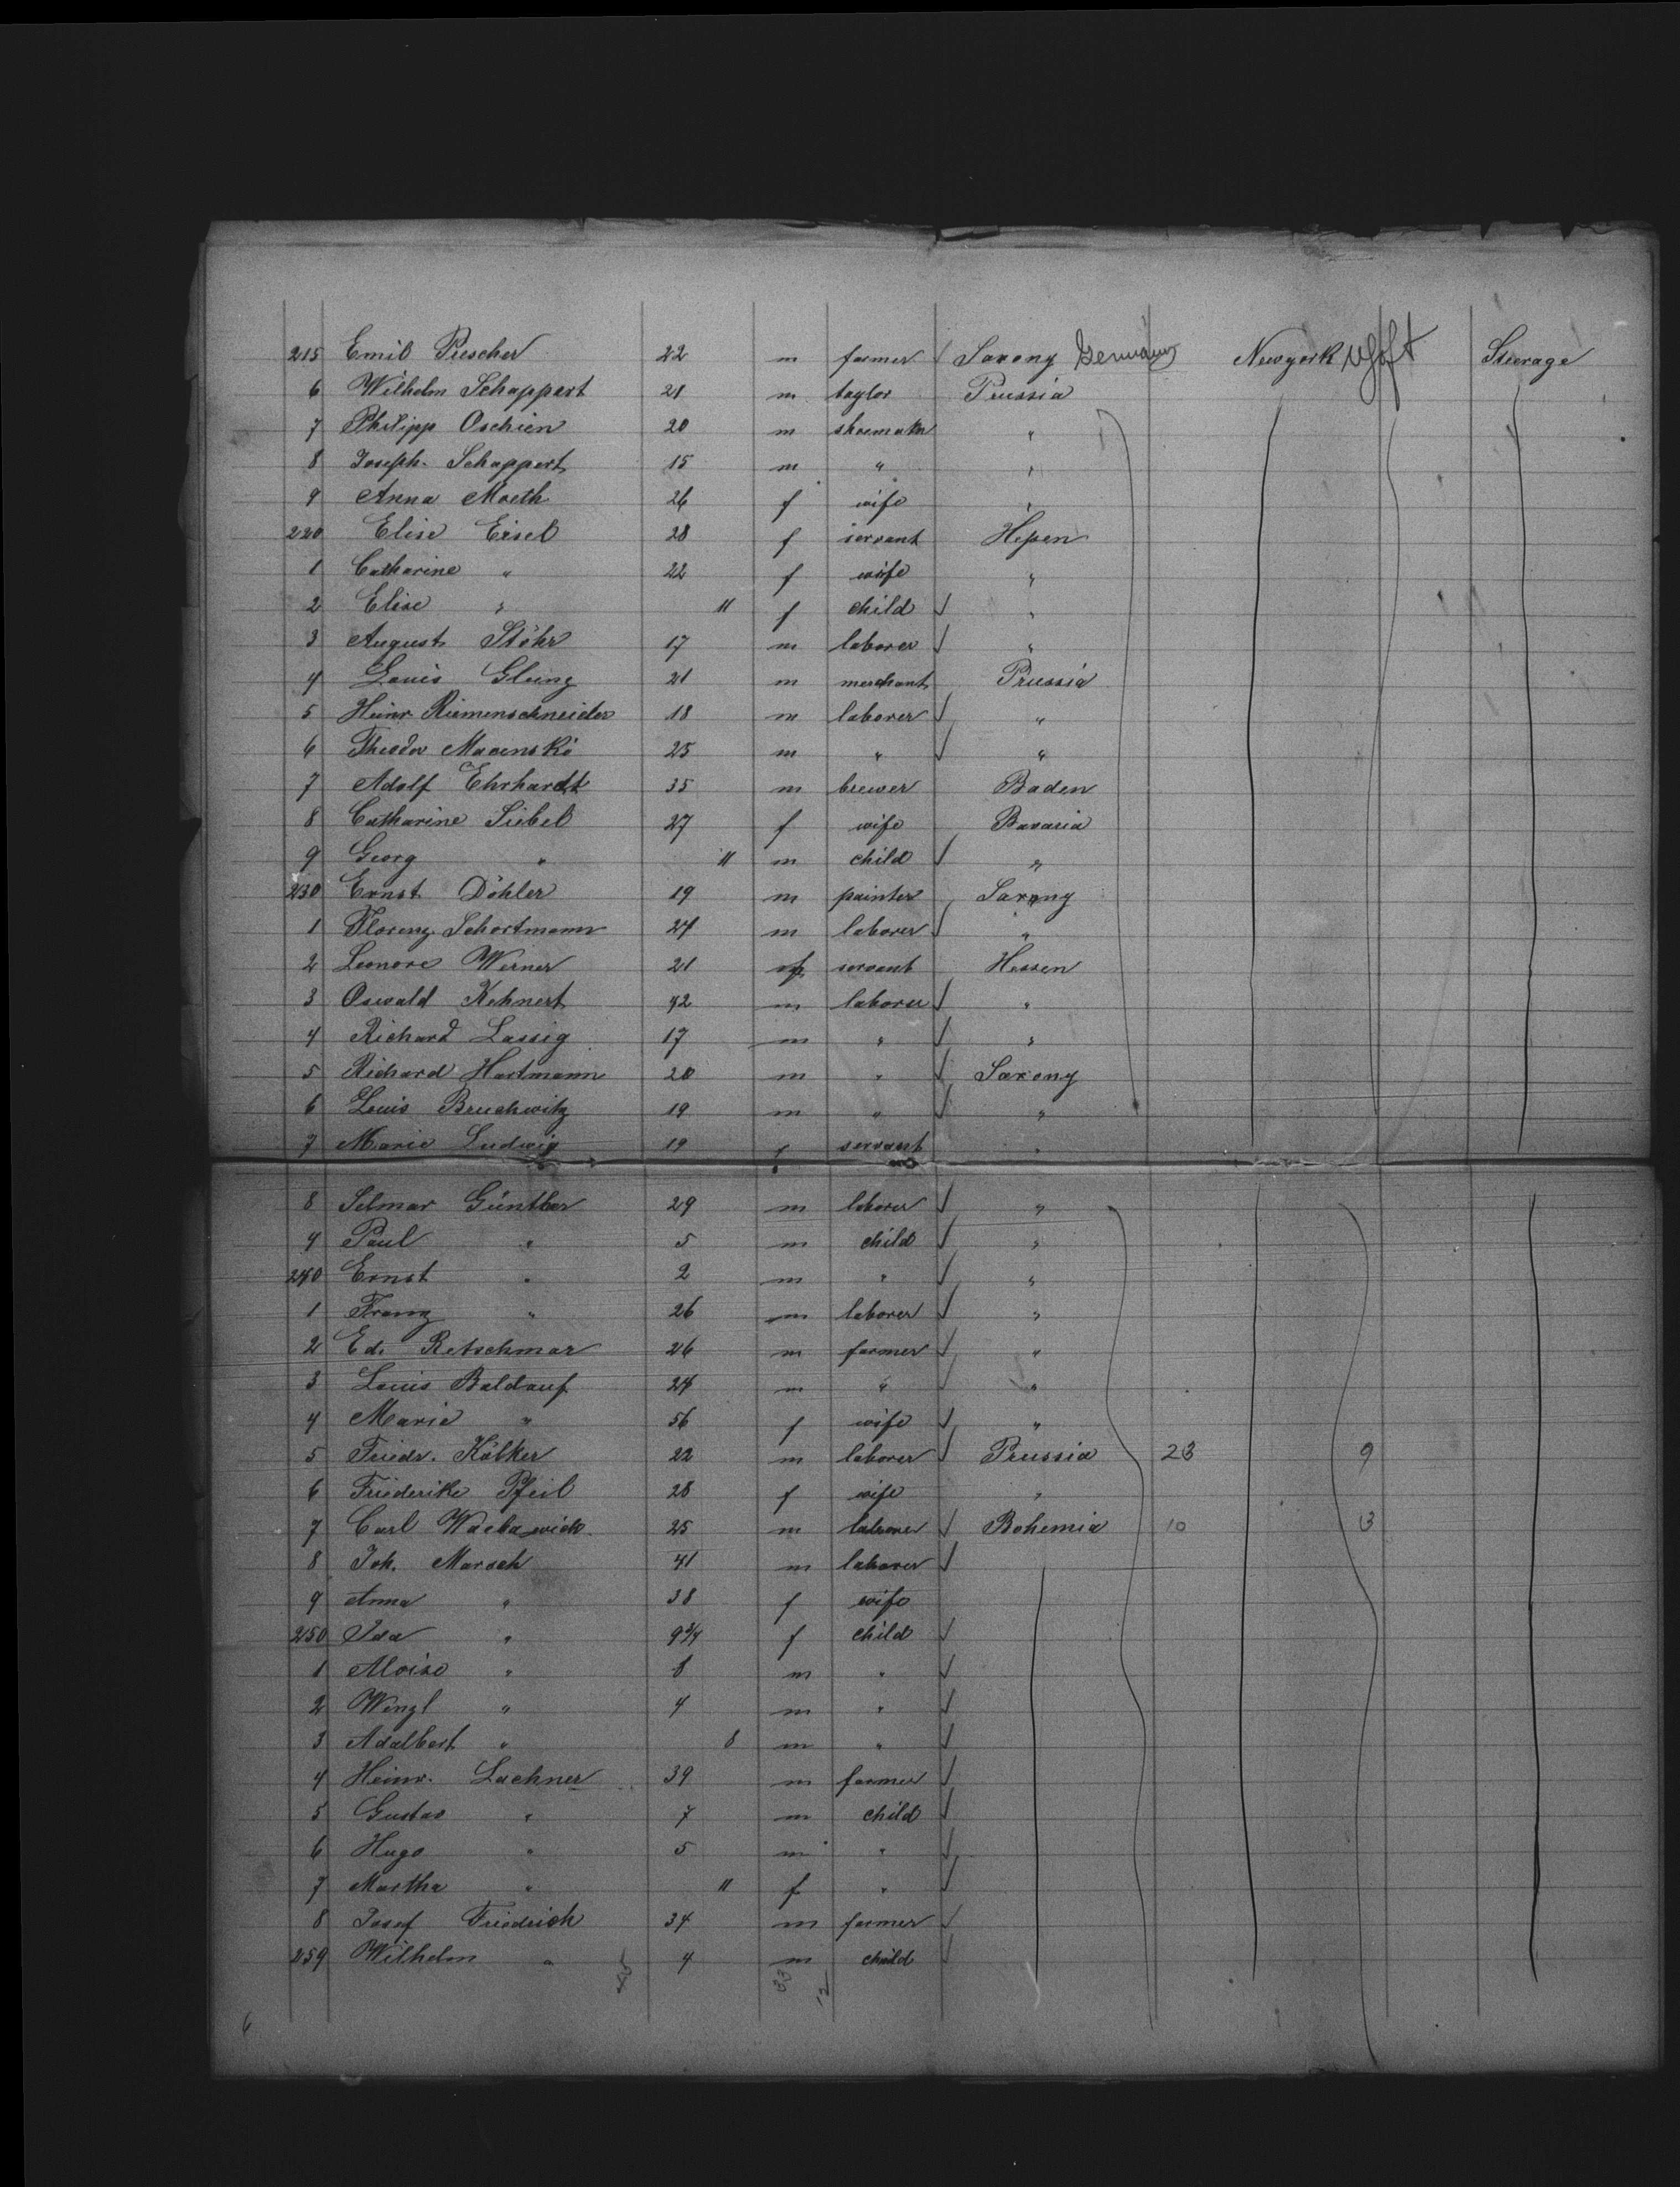 215 Emil Prescher 22 m farmer Saxony Germany Newyork Steerage
6 Wilhelm Schappert 21 m taylor Prussia
7 Philipp Oschien 20 m shoemaker "
8 Joseph Schappert 15 m " "
9 Anna Moeth 26 f wife "
220 Elise Eisel 28 f servant Heſsen
1 Catharine " 22 f wife "
2 Elise " 11 f child "
3 August Stöhr 17 m laborer "
4 Louis Gleing 21 m merchant Prussia
5 Heinr Riemenschneider 18 m laborer "
6 Theodor Macenski 25 m " "
7 Adolf Ehrhardt 35 m brewer Baden
8 Catharine Siebel 27 f wife Bavaria
9 Georg " 11 m child "
230 Ernst Döhler 19 m painter Saxony
1 Florenz Schortmann 24 m laborer "
2 Leonore Werner 21 f servant Hessen
3 Oswald Kehnert 42 m laborer "
4 Richard Lassig 17 m " "
5 Richard Hartmann 20 m " Saxony
6 Louis Bruchwitz 19 m " "
7 Marie Ludwig 19 f servant "
8 Selmar Günther 29 m laborer "
9 Paul " 5 m child "
240 Ernst " 2 m " "
1 Franz " 26 m laborer "
2 Ed. Retschmar 26 m farmer "
3 Louis Baldauf 24 m " "
4 Marie " 56 f wife "
5 Friedr. Kölker 22 m laborer Prussia 23 9
6 Friederike Pfeil 28 f wife "
7 Carl 25 m laborer Bohemia 10 3
8 Joh. Marsch 41 m laborer
9 Anna " 38 f wife
250 Ida " 9 3/4 f child
1 Aloise " 8 m "
2 Wenzl " 4 m "
3 Adalbert " 8 m "
4 Heinr. Lachner 39 m farmer
5 Gustav " 7 m child
6 Hugo " 5 m "
7 Martha " 11 f "
8 Josef Friedrich 34 m farmer
259 Wilhelm " 4 m child
33 12
6